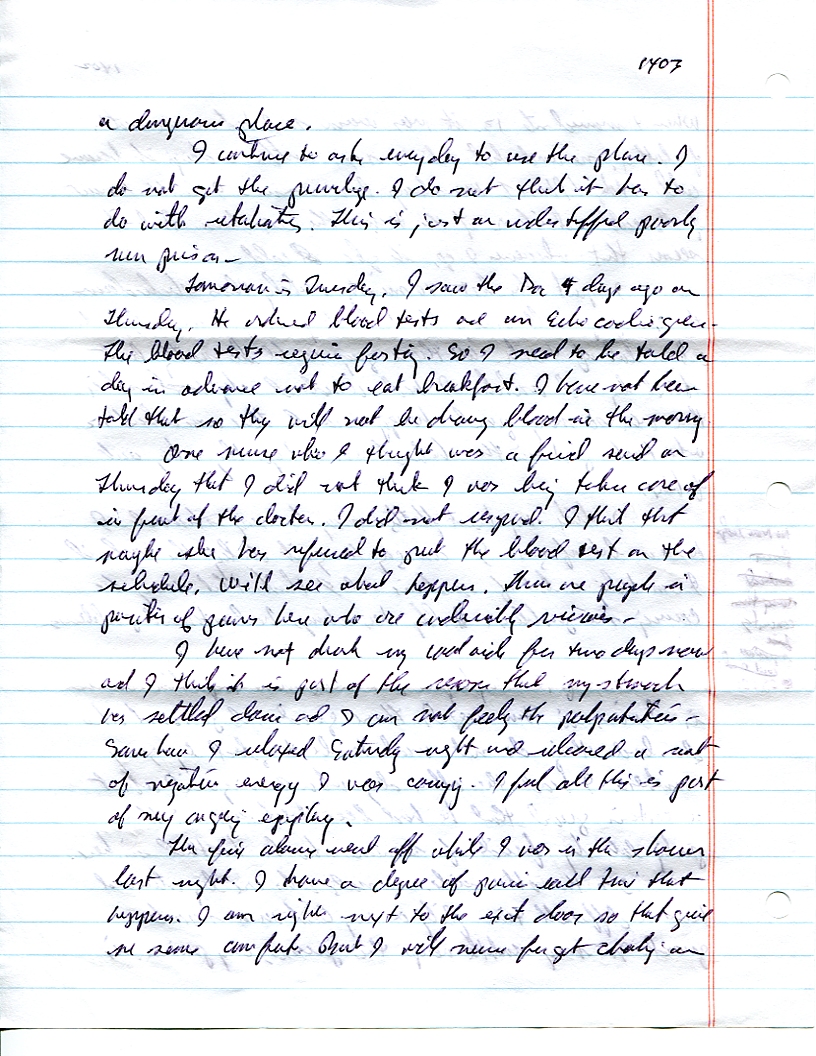 1407
a dangerous place.
I continue to ask every day to use the phone. I
do not get the privilege. I do not think it has to
do with retaliation. This is just an understaffed poorly
run prison –
Tomorrow is Tuesday. I saw the Doc 4 days ago on
Thursday. He ordered blood tests and an Echo
The blood tests require fasting. So I need to be told a
day in advance not to eat breakfast. I have not been
told that so they will not be drawing blood in the morning
One nurse who I thought was a friend said on
Thursday that I did not think I was being taken care of
in front of the doctor. I did not respond. I think that
maybe she has refused to put the blood test on the
schedule. Will see what happens. There are people in
positions of power here who are incredibly vicious –
I have not drank my for two days now
and I think it is part of the reason that my stomach
has settled down and I am not feeling the palpitations –
Somehow I relaxed Saturday night and released a lot
of negative energy I was carrying. I feel all this is part
of my ongoing epiphany.
The fire alarm went off while I was in the shower
last night. I have a degree of panic each time that
happens. I am right next to the exit door so that gives
me some comfort. But I will never forget choking on